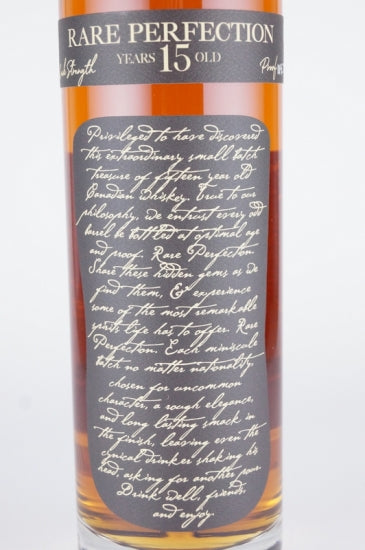 RARE PERFECTION
YEARS 15 OLD
Strength
Proof
Privileged to have discovered
this extraordinary small batch
treasure of fifteen year old
Canadian Whiskey. True to our
philosophy, we entrust every odd
barrel be bottled at optimal age
and proof. Rare Perfection.
Share these hidden gems as we
find them, & experience
some of the most remarkable
spirits life has to offer. Rare
Perfection. Each miniscule
batch no matter nationality,
chosen for uncommon
character, a rough elegance,
and long lasting smack in
the finish, leaving even the
cynical drinker shaking his
head, asking for another pour.
Drink well, friends,
and enjoy.